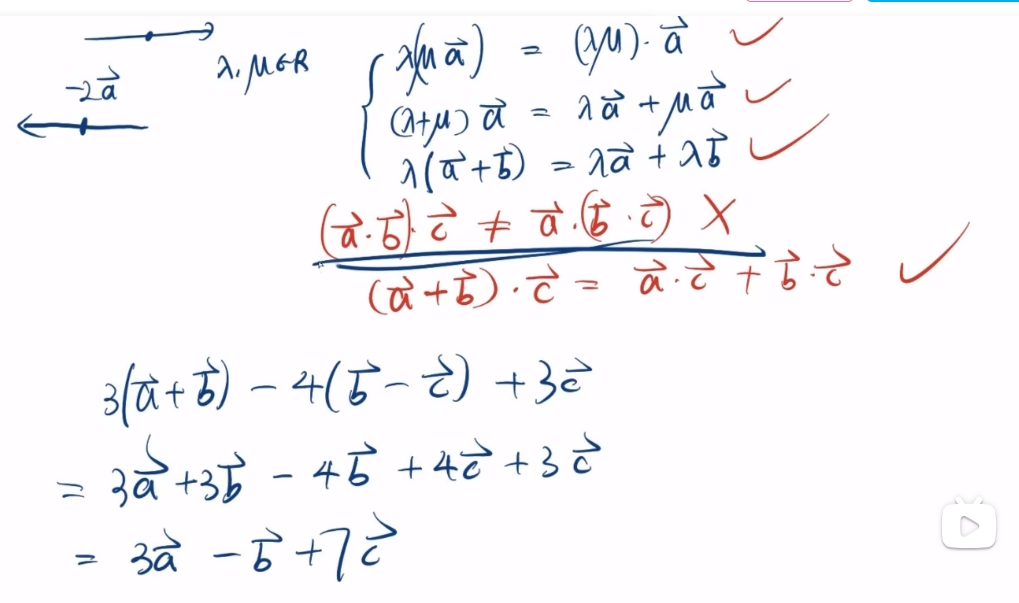 λ(μa⃗) = (λμ)·a⃗ ✓
λ, μ∈R
-2a⃗
(λ+μ)a⃗ = λa⃗ + μa⃗ ✓
λ(a⃗+b⃗) = λa⃗ + λb⃗ ✓
(a⃗·b⃗)·c⃗ ≠ a⃗·(b⃗·c⃗) X
(a⃗+b⃗)·c⃗ = a⃗·c⃗ + b⃗·c⃗ ✓
3(a⃗+b⃗) - 4(b⃗-c⃗) + 3c⃗
= 3a⃗ + 3b⃗ - 4b⃗ + 4c⃗ + 3c⃗
= 3a⃗ - b⃗ + 7c⃗